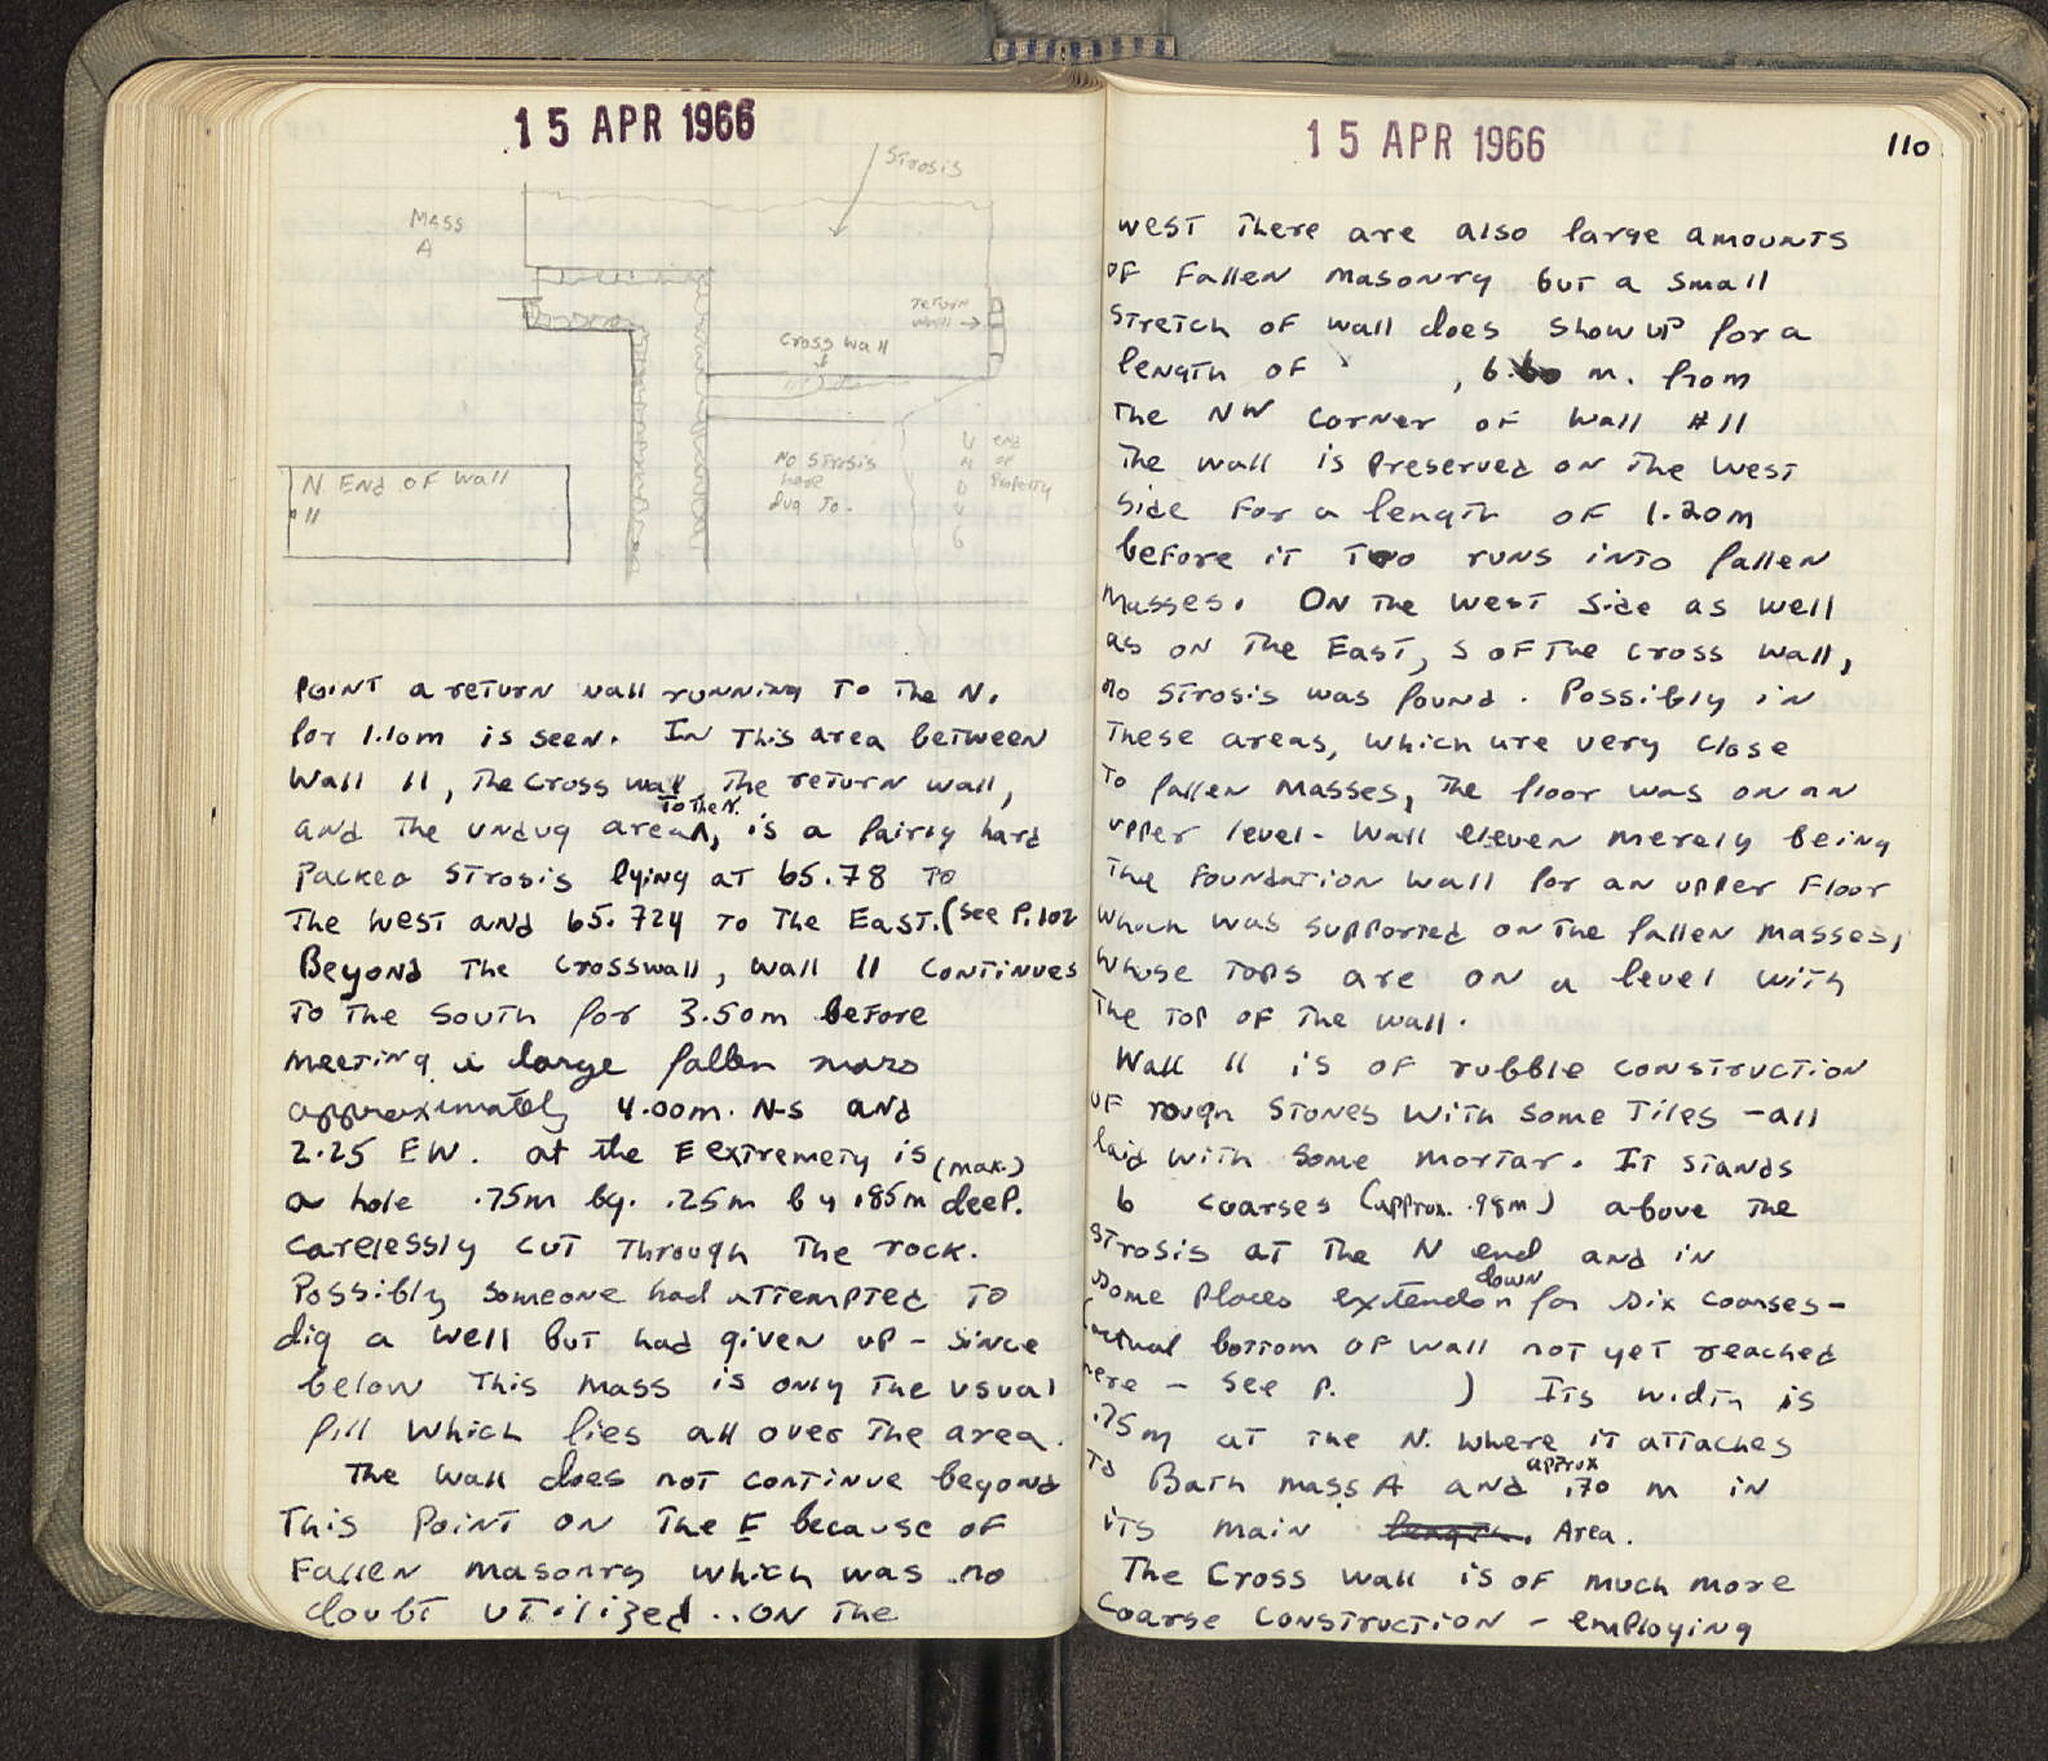 15 APR 1966
strosis
MASS
A
return
wall →
cross wall
no strosis
here
dug to.
U
N
D
U
G
end
of
Property
N End of Wall
11
Point a return wall running to the N.
for 1.10m is seen. In this area between
Wall 11, the cross wall, the return wall,
to the N.
and the undug area, is a fairly hard
packed strosis lying at 65.78 to
the west and 65.724 to the East. (see P. 102
Beyond the crosswall, wall 11 continues
to the south for 3.50m before
meeting a large fallen mass
approximately 4.00m. N-S and
2.25 EW. at the E extremety is
(max.)
a hole .75m by. .25m by .85m deep.
carelessly cut through the rock.
Possibly someone had attempted to
dig a well but had given up - since
below this mass is only the usual
fill which lies all over the area.
The wall does not continue beyond
this point on the E because of
Fallen masonry which was no
doubt utilized.. on the
15 APR 1966
110
west there are also large amounts
of fallen masonry but a small
stretch of wall does show up for a
length of , 6. m. from
the NW corner of Wall #11
The wall is preserved on the west
side for a length of 1.20m
before it too runs into fallen
masses. On the west side as well
as on the East, S of the cross wall,
no strosis was found. Possibly in
these areas, which are very close
to fallen masses, the floor was on an
upper level - Wall eleven merely being
the foundation wall for an upper floor
which was supported on the fallen masses,
whose tops are on a level with
the top of the wall.
Wall 11 is of rubble construction
of rough stones with some tiles - all
laid with some mortar. It stands
6 coarses (approx. .98m) above the
strosis at the N end and in
down
some places extends for six coarses -
(actual bottom of wall not yet reached
here - see p. ) Its width is
.75m at the N. where it attaches
approx
to Bath mass A and .70 m in
its main length. Area.
The Cross wall is of much more
coarse construction - employing